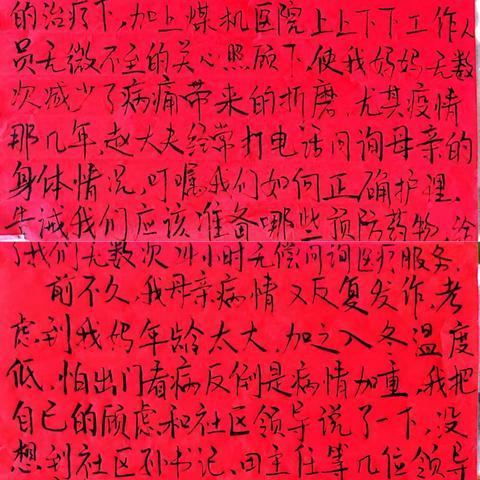 的治疗下,加上煤机医院上上下下工作人
员无微不至的关心照顾下,使我妈妈无数
次减少了病痛带来的折磨。尤其疫情
那几年,赵大夫经常打电话问询母亲的
身体情况,叮嘱我们如何正确护理,
告诫我们应该准备哪些预防药物,给
了我们无数次24小时无偿问询医疗服务。
前不久,我母亲病情又反复发作,考
虑到我妈年龄太大,加之入冬温度
低,怕出门看病反倒是病情加重,我把
自己的顾虑和社区领导说了一下,没
想到社区孙书记、田主任等几位领导